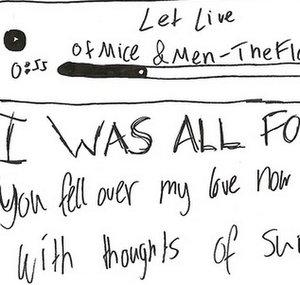 Let Live
Of Mice & Men - The Flo
0:55
I WAS ALL FO
You fell over my love now
with thoughts of sur